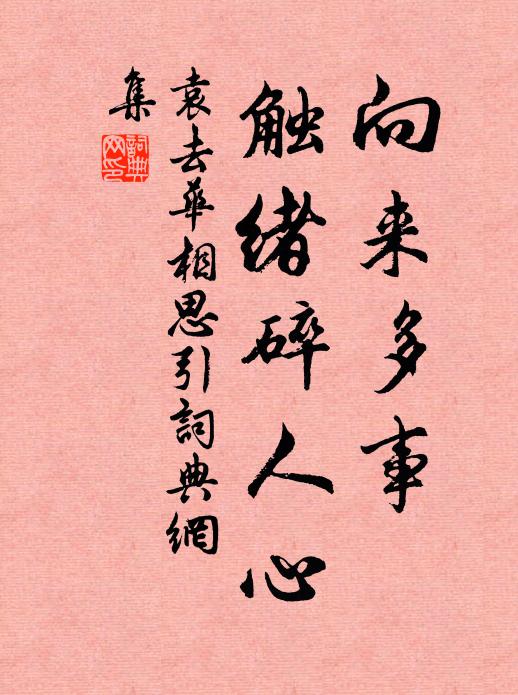 向来多事
触绪碎人心
袁去華相思引詞典網
集
詞典
网印